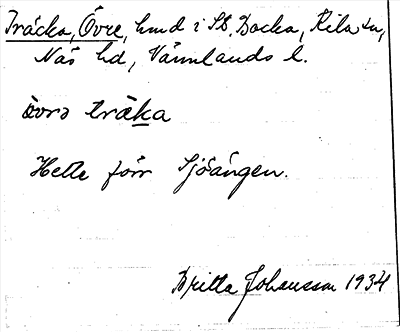 Träcka, Övre, hmd i St. Backa, Kila sn,
Näs hd, Värmlands l.
övrə träka
Hette förr Sjöängen.
Britta Johansson 1934